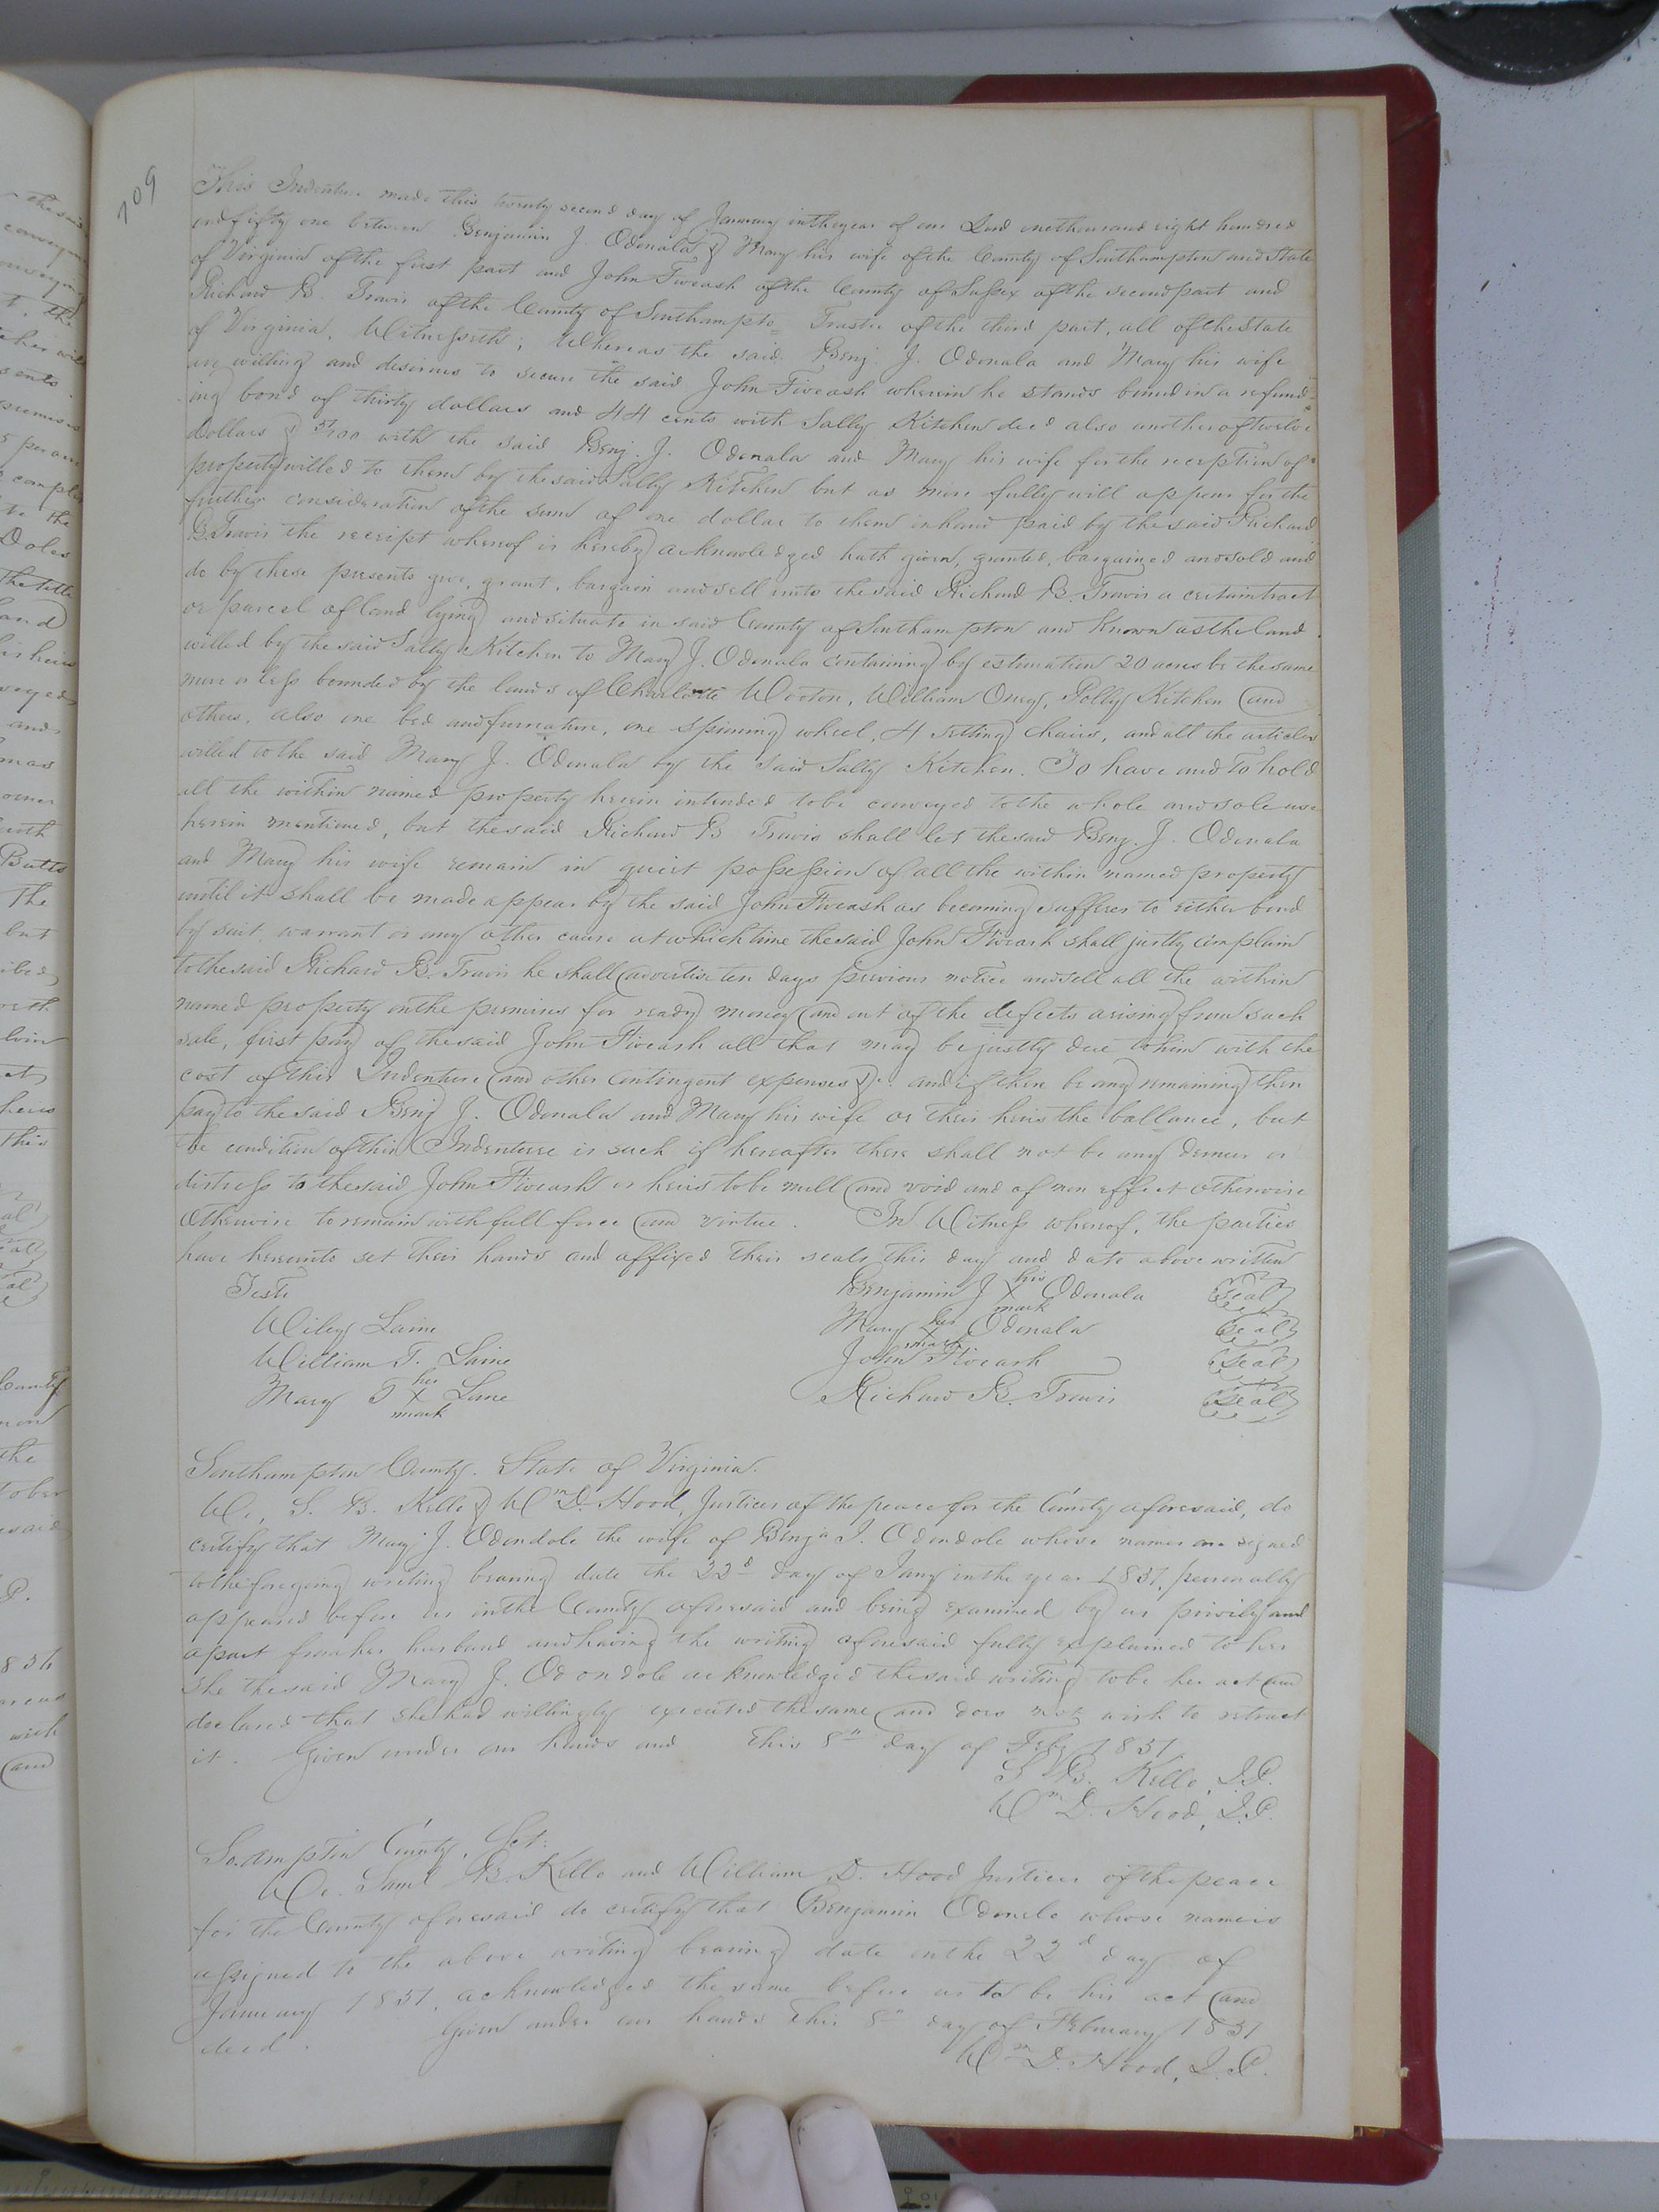 709
This Indenture made this twenty second day of January in the year of our Lord one thousand eight hundred
and fifty one between Benjamin J. Odonala & Mary his wife of the County of Southampton and State
of Virginia of the first part and John Fiveash of the County of Sussex of the second part and
Richard B. Travis of the County of Southampto= Trastee of the third part, all of the State
of Virginia, Witnesseth; Whereas the said Benj. J. Odonala and Mary his wife
are willing and desirous to secure the said John Fiveash wherein he stands bound in a refund-
ing bond of thirty dollars and 44 cents with Sally Kitchen decd also another of twelve
Dollars & with the said Benj. J. Odonala and Mary his wife for the reception of
property willed to them by the said Sally Kitchen but as more fully will appear for the
further consideration of the sum of one dollar to them in hand paid by the said Richard
B. Travis the receipt whereof is hereby acknowledged hath given, granted, bargained and sold and
do by these presents give, grant, bargain and sell unto the said Richard B. Travis a certain tract
or parcel of land lying and situate in said County of Southampton and known as the land
willed by the said Sally Kitchen to Mary J. Odonala containing by estimation 20 acres be the same
more or less bounded by the lands of Charlotte Wooton, William Oney, Polly Kitchen and
others, also one bed and furnature, one spinning wheel, 4 setting chairs, and all the articles
willed to the said Mary J. Odonala by the said Sally Kitchen. To have and to hold
all the within named property herein intended to be conveyed to the whole and sole use
herein mentioned, but the said Richard B Travis shall let the said Benj. J. Odonala
and Mary his wife remain in quiet possession of all the within named property
until it shall be made appear by the said John Fiveash as becoming sufferer to either bond
by suit, warrant or any other cause at which time the said John Fiveash shall justly complain
to the said Richard B. Travis he shall advertise ten days previous notice and sell all the within
named property on the premises for ready money and out of the defects arising from such
sale, first pay of the said John Fiveash all that may be justly due to him with the
cost of this Indenture and other contingent expenses &c. and if there be any remaining then
pay to the said Benj J. Odonala and Mary his wife or their heirs the ballance, but
the condition of this Indenture is such if hereafter there shall not be any demur or
distress to the said John Fiveash or heirs to be null and void and of non effect otherwise
otherwise to remain with full force and virtue. In Witness whereof, the parties
have hereunto set their hands and affixed their seals this day and date above written
Teste Benjamin J his X mark Odonala Seal
Wiley Laine Mary her X mark Odonala Seal
William T. Laine John Fiveash Seal
Mary T her X mark Lane Richard B. Travis Seal
Southampton County. State of Virginia.
We, S. B. Kello & Wm D. Hood, Justices of the peace for the County aforesaid, do
certify that Mary J. Odondole the wife of Benja J. Odondole whose names are signed
to the foregoing writing bearing date the 22d day of Jany in the year 1851, personally
appeared before us in the County aforesaid and being examined by us privily and
apart from her husband and having the writing aforesaid fully explained to her
she the said Mary J. Odondole acknowledged the said writing to be her act and
declared that she had willingly executed the same and does not wish to retract
it. Given under our hands and this 8th day of Feby 1851.
S B. Kello, J.P.
Wm D. Hood, J.P.
So.ampton County, Sct:
We. Saml B. Kello and William D. Hood Justices of the peace
for the County aforesaid do certify that Benjamin Odonelo whose name is
assigned to the above writing bearing date on the 22d day of
January 1851, acknowledged the same before us to be his act and
deed. Given under our hands this 8th day of February 1851
Wm D. Hood, J.P.